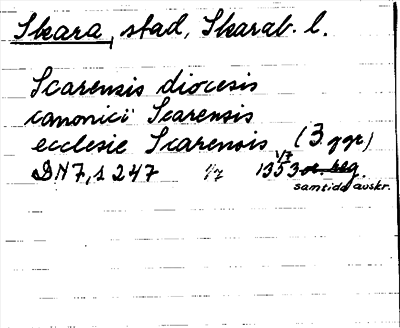 Skara, stad, Skarab. l.
Scarensis diocesis
canonici Scarensis
ecclesie Scarensis (3 ggr)
DN 7, s 247 1/7 1353 or. reg.
1/7
samtida avskr.